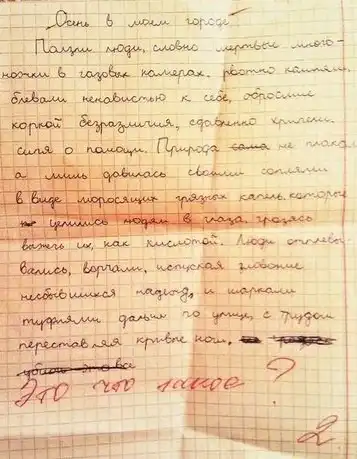 „Осень в моем городе"
Ползли люди, словно мертвые много-
ножки в газовых камерах, рвотно кашляли,
блевали ненавистью к себе, обросшие
коркой безразличия, сдавленно хрипели
сипя о помощи. Природа сама не плакала
а лишь давилась своими соплями
в виде моросящих грязных капель, которые
целились людям в глаза, грозясь
выжечь их, как кислотой. Люди отплевы-
вались, ворчали, испуская зловоние
несбывшихся надежд, и шаркали
туфлями дальше по улице, с трудом
переставляя кривые ноги.
убого это все
Это что такое ?
2